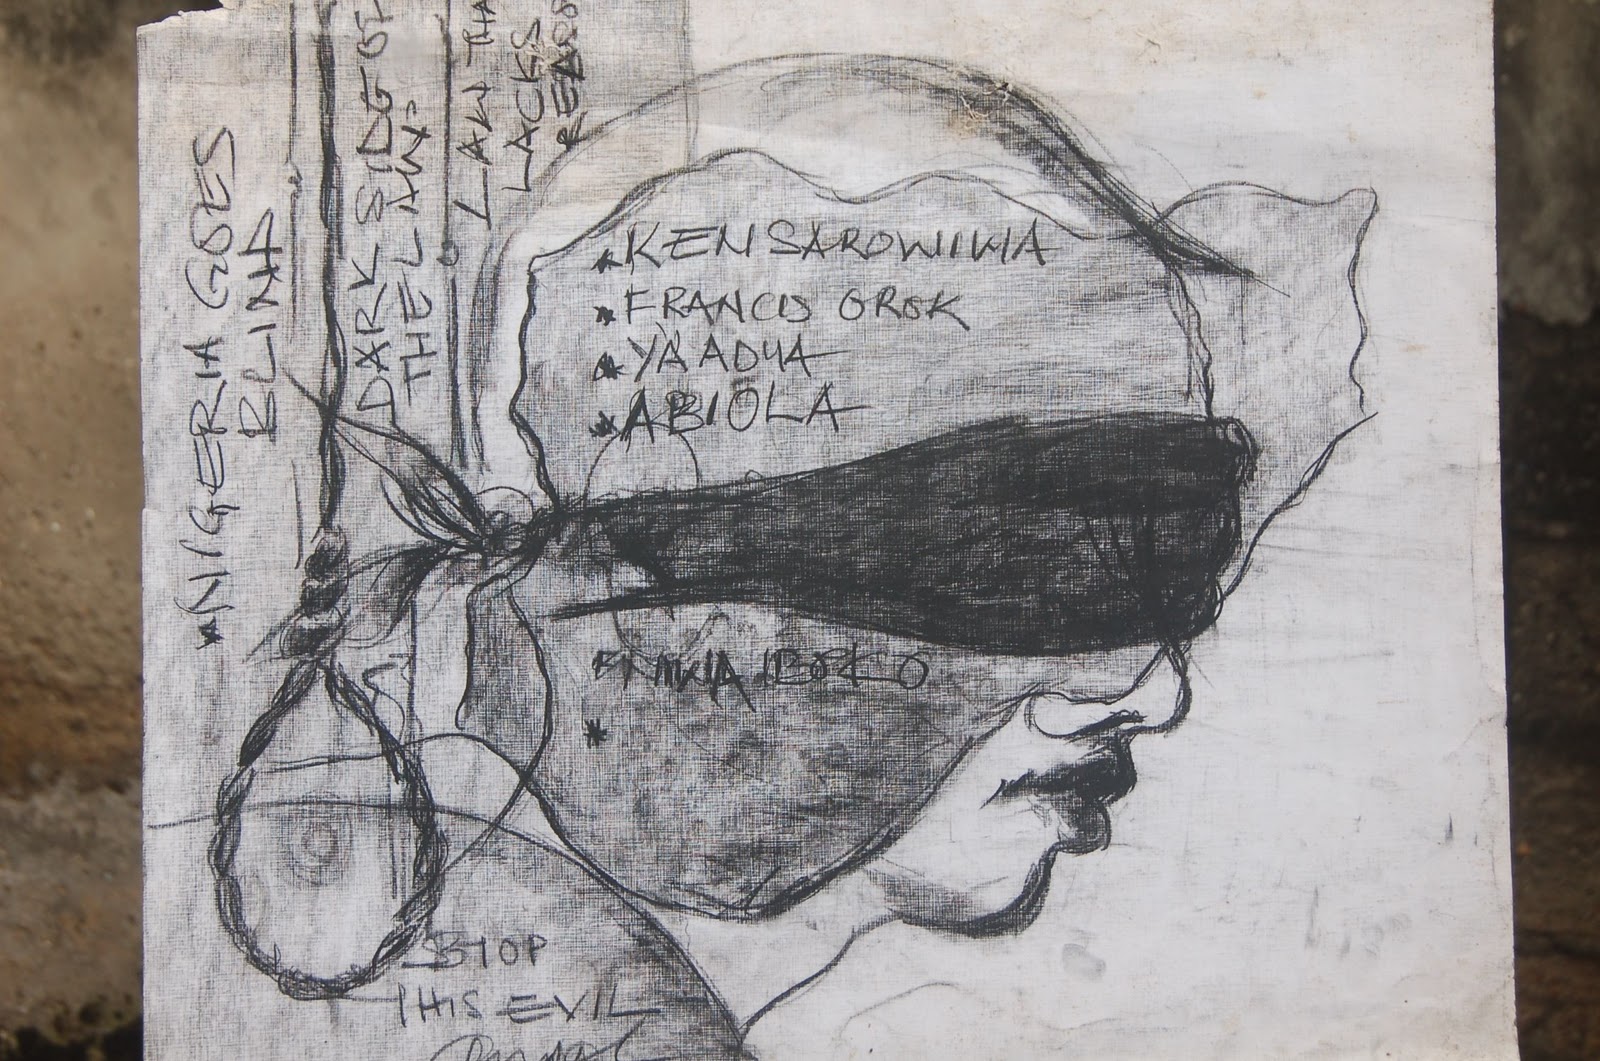 *NIGERIA GOES
BLIND
DARK SIDE OF
THE LAW
LAW THA
LACKS
REASO
*KENSAROWIWA
*FRANCIS OROK
*YA'ADUA
*ABIOLA
*
STOP
THIS EVIL